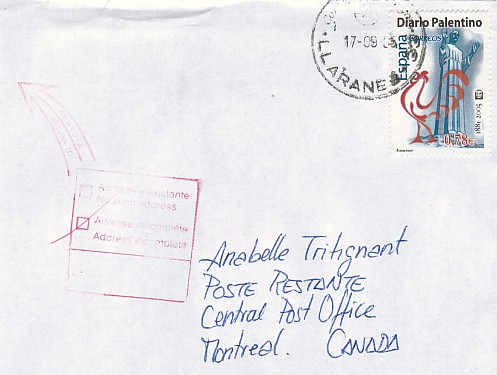 Diario Palentino
España
CORREOS
1881-2005
0,78€
17-09
LLARANES
Adresse inexistante
No such address
Adresse incomplète
Address incomplete
Anabelle Tritignant
POSTE RESTANTE
Central Post Office
Montreal. CANADA